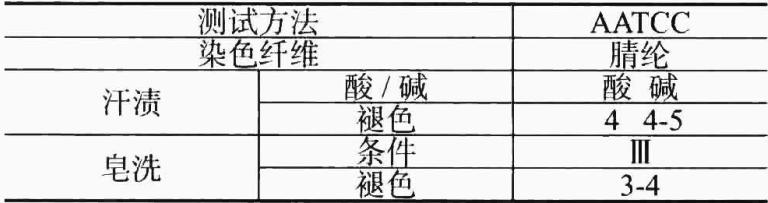 测试方法 AATCC
染色纤维 腈纶
汗渍 酸/碱 酸 碱
褪色 4 4-5
皂洗 条件 Ⅲ
褪色 3-4